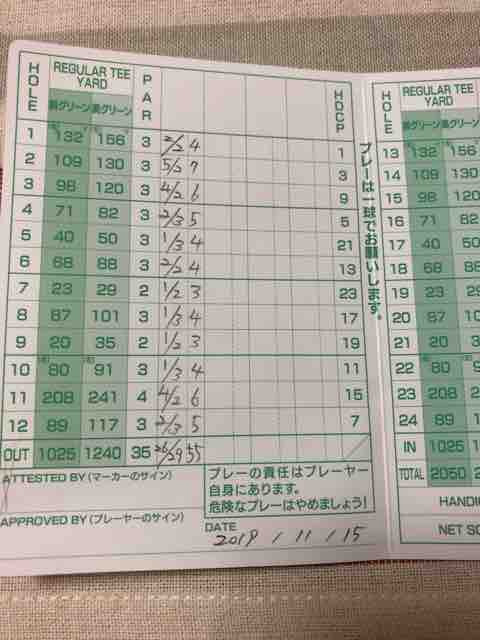 HOLE REGULAR TEE YARD PAR HDCP
裏グリーン 表グリーン
1 132 156 3 2/2 4 1
2 109 130 3 5/2 7 3
3 98 120 3 4/2 6 9
4 71 82 3 2/3 5 5
5 40 50 3 1/3 4 21
6 68 88 3 2/2 4 13
7 23 29 2 1/2 3 23
8 87 101 3 1/3 4 17
9 20 35 2 1/2 3 19
10 80 91 3 1/3 4 11
11 208 241 4 4/2 6 15
12 89 117 3 2/3 5 7
OUT 1025 1240 35 26/29 55
ATTESTED BY (マーカーのサイン)
APPROVED BY (プレーヤーのサイン)
プレーの責任はプレーヤー
自身にあります。
危険なプレーはやめましょう!
DATE
2019 / 11 / 15
プレーは一球でお願いします。
HOLE REGULAR TEE YARD
裏グリーン 表グリーン
13 132 156
14 109 130
15 98 120
16 71 82
17 40 50
18 68 88
19 23 29
20 87 10
21 20 35
22 80 9
23 208 24
24 89 11
IN 1025
TOTAL 2050
HANDI
NET SC